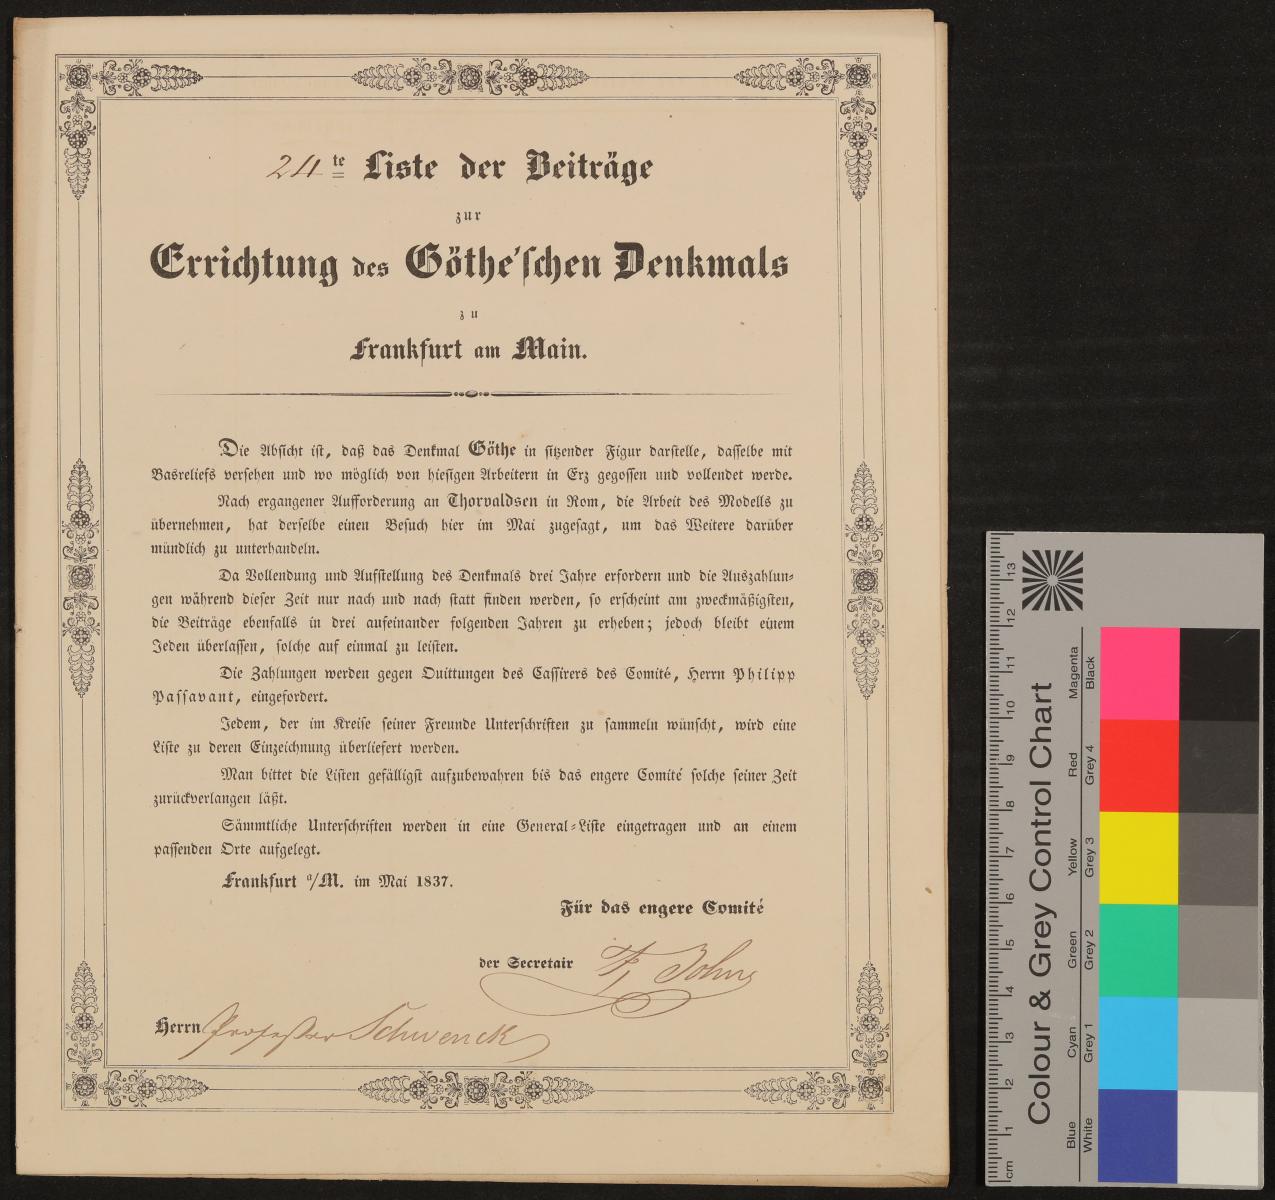 24te Liste der Beiträge
zur
Errichtung des Göthe'schen Denkmals
zu
Frankfurt am Main.
Die Absicht ist, daß das Denkmal Göthe in sitzender Figur darstelle, dasselbe mit
Basreliefs versehen und wo möglich von hiesigen Arbeitern in Erz gegossen und vollendet werde.
Nach ergangener Aufforderung an Thorvaldsen in Rom, die Arbeit des Modells zu
übernehmen, hat derselbe einen Besuch hier im Mai zugesagt, um das Weitere darüber
mündlich zu unterhandeln.
Da Vollendung und Aufstellung des Denkmals drei Jahre erfordern und die Auszahlun-
gen während dieser Zeit nur nach und nach statt finden werden, so erscheint am zweckmäßigsten,
die Beiträge ebenfalls in drei aufeinander folgenden Jahren zu erheben; jedoch bleibt einem
Jeden überlassen, solche auf einmal zu leisten.
Die Zahlungen werden gegen Quittungen des Cassirers des Comité, Herrn Philipp
Passavant, eingefordert.
Jedem, der im Kreise seiner Freunde Unterschriften zu sammeln wünscht, wird eine
Liste zu deren Einzeichnung überliefert werden.
Man bittet die Listen gefälligst aufzubewahren bis das engere Comité solche seiner Zeit
zurückverlangen läßt.
Sämmtliche Unterschriften werden in eine General-Liste eingetragen und an einem
passenden Orte aufgelegt.
Frankfurt a/M. im Mai 1837.
Für das engere Comité
der Secretair
Herrn Professor Schwenck
Colour & Grey Control Chart
Blue Cyan Green Yellow Red Magenta
White Grey 1 Grey 2 Grey 3 Grey 4 Black
cm 1 2 3 4 5 6 7 8 9 10 11 12 13